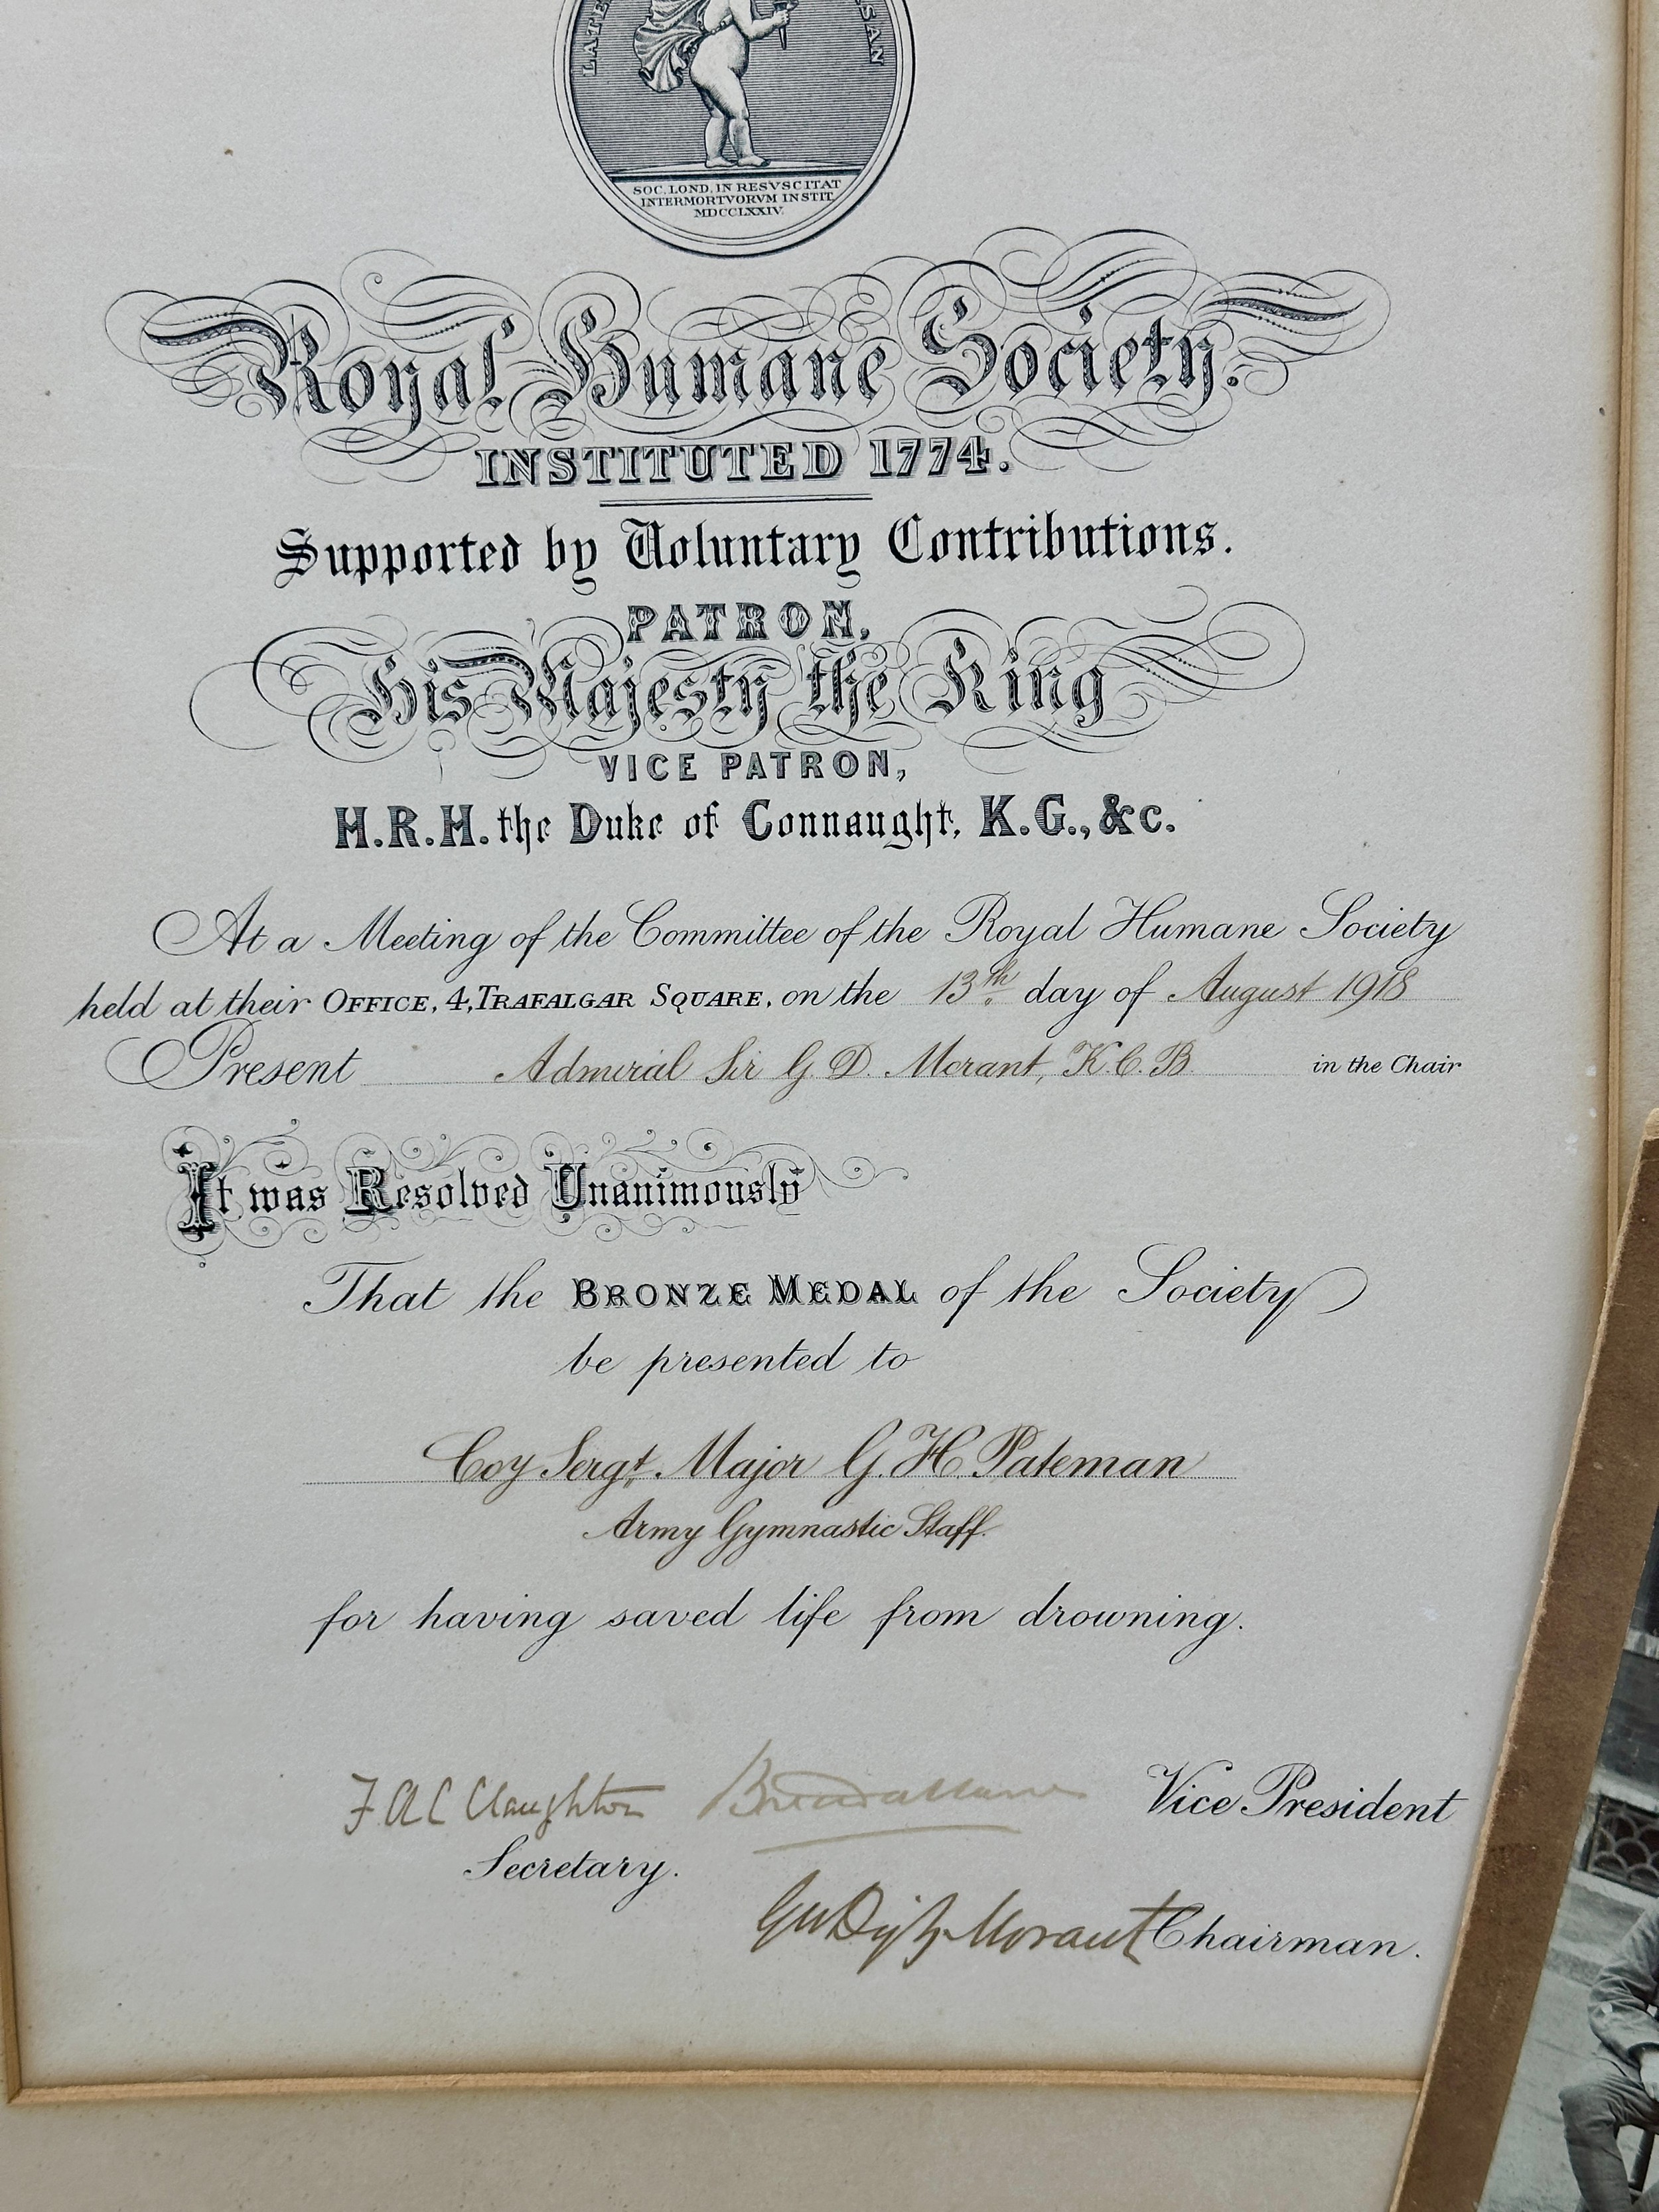 LATE SSAN
SOC. LOND. IN RESVSCITAT
INTERMORTVORVM INSTIT.
MDCCLXXIV.
Royal Humane Society.
INSTITUTED 1774.
Supported by Voluntary Contributions.
PATRON,
His Majesty the King
VICE PATRON,
H.R.H. the Duke of Connaught, K.G., &c.
At a Meeting of the Committee of the Royal Humane Society
held at their OFFICE, 4, TRAFALGAR SQUARE, on the 13th day of August 1918
Present Admiral Sir G. D. Morant, K.C.B. in the Chair
It was Resolved Unanimously
That the BRONZE MEDAL of the Society
be presented to
Coy Sergt. Major G. H. Pateman
Army Gymnastic Staff.
for having saved life from drowning.
F A C Claughton Vice President
Secretary.
Geo Digby Morant Chairman.